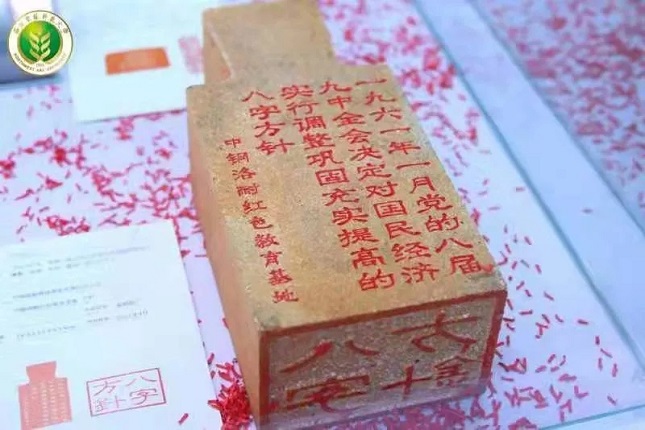 一九六一年一月党的八届
九中全会决定对国民经济
实行调整巩固充实提高的
八字方针
中钢洛耐红色教育基地
八字
八字
方針